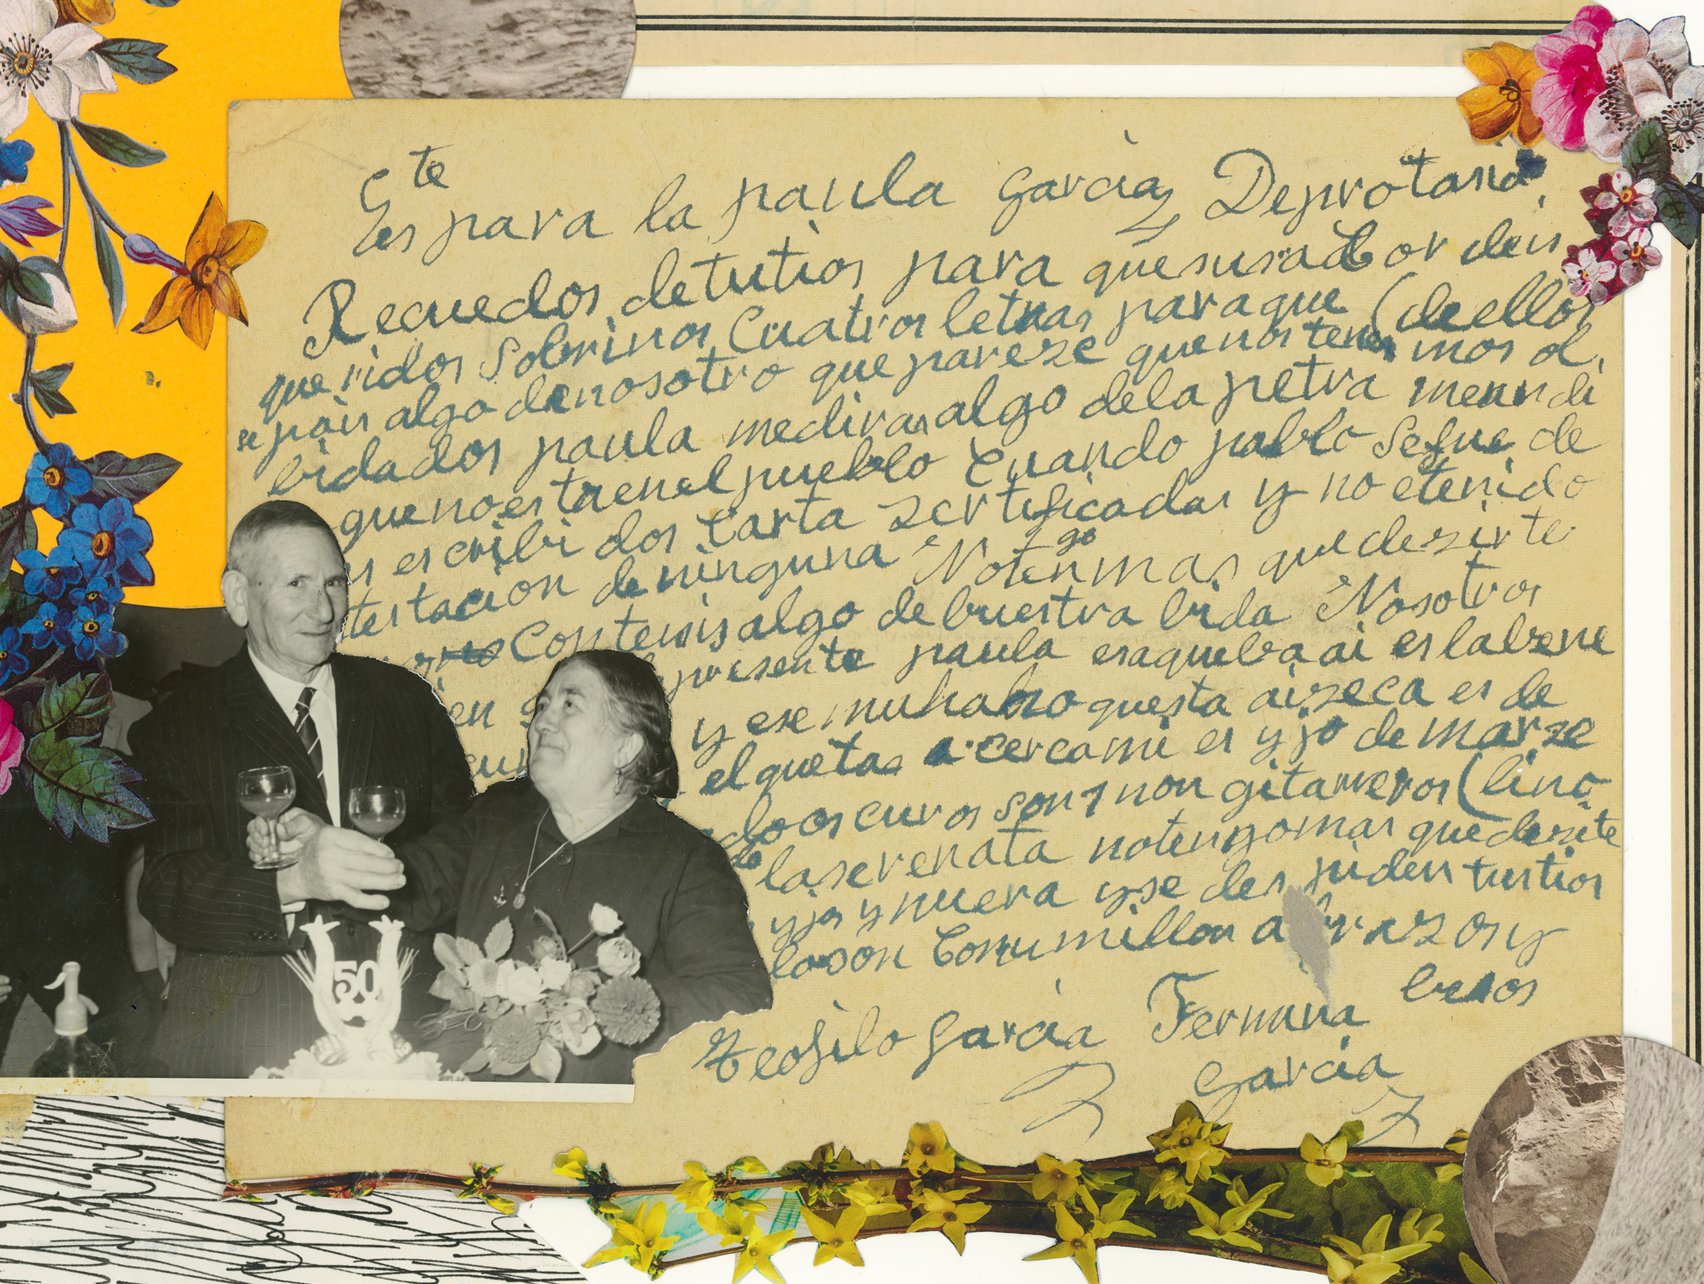 Este
Es para la paula Garcia Deprotania.
Recuedos de tutios para que susradbor deis
queridos Sobrinos Cuatros letras para que (de ellos
sepais algo denosotro que pareze que nos tenemos ol
bidados paula mediras algo dela petra menudi
que no esta en el pueblo Cuando pablo Sefue de
escribi dos Carta zertificadas y no etenido
testacion de ninguna Notengo mas que dezirte
Conteisis algo de buestra bida Nosotros
presente paula esaquebaai es labue
y ese muhabo questa aizeca es de
el quetas a cercami es y jo de marze
oscuros son 1 non gitarreros (linc
de la serenata notengomas quedezite
yjos y nuera y se des piden tustios
lason Conumillon abrazos y
besos
Teofilo Garcia Fermina
Garcia
50